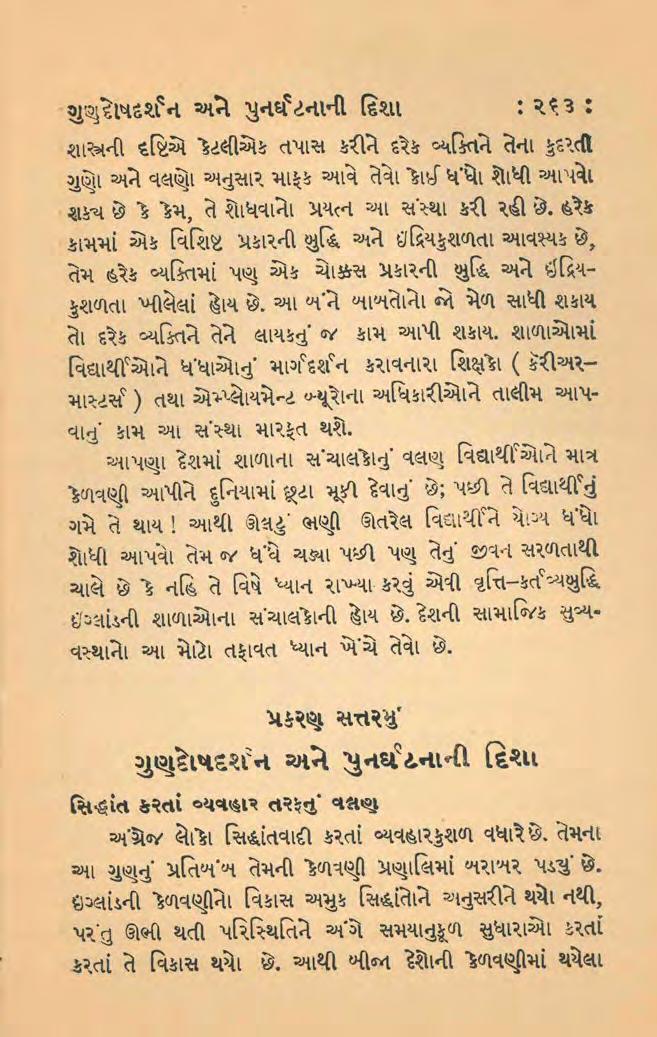 ગુણદોષદર્શન અને પુનર્ઘટનાની દિશા : ૨૬૩ :
શાસ્ત્રની દૃષ્ટિએ કેટલીએક તપાસ કરીને દરેક વ્યક્તિને તેના કુદરતી
ગુણો અને વલણો અનુસાર માફક આવે તેવો કોઈ ધંધો શોધી આપવો
શક્ય છે કે કેમ, તે શોધવાનો પ્રયત્ન આ સંસ્થા કરી રહી છે. હરેક
કામમાં એક વિશિષ્ટ પ્રકારની બુદ્ધિ અને ઇંદ્રિયકુશળતા આવશ્યક છે,
તેમ હરેક વ્યક્તિમાં પણ એક ચોક્કસ પ્રકારની બુદ્ધિ અને ઇંદ્રિય-
કુશળતા ખીલેલાં હોય છે. આ બંને બાબતોનો જો મેળ સાધી શકાય
તો દરેક વ્યક્તિને તેને લાયકનું જ કામ આપી શકાય. શાળાઓમાં
વિદ્યાર્થીઓને ધંધાઓનું માર્ગદર્શન કરાવનારા શિક્ષકો ( કૅરીઅર–
માસ્ટર્સ ) તથા એમ્પ્લોયમેન્ટ બ્યૂરોના અધિકારીઓને તાલીમ આપ-
વાનું કામ આ સંસ્થા મારફત થશે.
આપણા દેશમાં શાળાના સંચાલકોનું વલણ વિદ્યાર્થીઓને માત્ર
કેળવણી આપીને દુનિયામાં છૂટા મૂકી દેવાનું છે; પછી તે વિદ્યાર્થીનું
ગમે તે થાય ! આથી ઊલટું ભણી ઊતરેલ વિદ્યાર્થીને યોગ્ય ધંધો
શોધી આપવો તેમ જ ધંધે ચડ્યા પછી પણ તેનું જીવન સરળતાથી
ચાલે છે કે નહિ તે વિષે ધ્યાન રાખ્યા કરવું એવી વૃત્તિ–કર્તવ્યબુદ્ધિ
ઇંગ્લાંડની શાળાઓના સંચાલકોની હોય છે. દેશની સામાજિક સુવ્ય-
વસ્થાનો આ મોટો તફાવત ધ્યાન ખેંચે તેવો છે.
પ્રકરણ સત્તરમું
ગુણદોષદર્શન અને પુનર્ઘટનાની દિશા
સિદ્ધાંત કરતાં વ્યવહાર તરફનું વલણ
અંગ્રેજ લોકો સિદ્ધાંતવાદી કરતાં વ્યવહારકુશળ વધારે છે. તેમના
આ ગુણનું પ્રતિબંબ તેમની કેળવણી પ્રણાલિમાં બરાબર પડ્યું છે.
ઇંગ્લાંડની કેળવણીનો વિકાસ અમુક સિદ્ધાંતોને અનુસરીને થયો નથી,
પરંતુ ઊભી થતી પરિસ્થિતિને અંગે સમયાનુકૂળ સુધારાઓ કરતાં
કરતાં તે વિકાસ થયો છે. આથી બીજા દેશોની કેળવણીમાં થયેલા